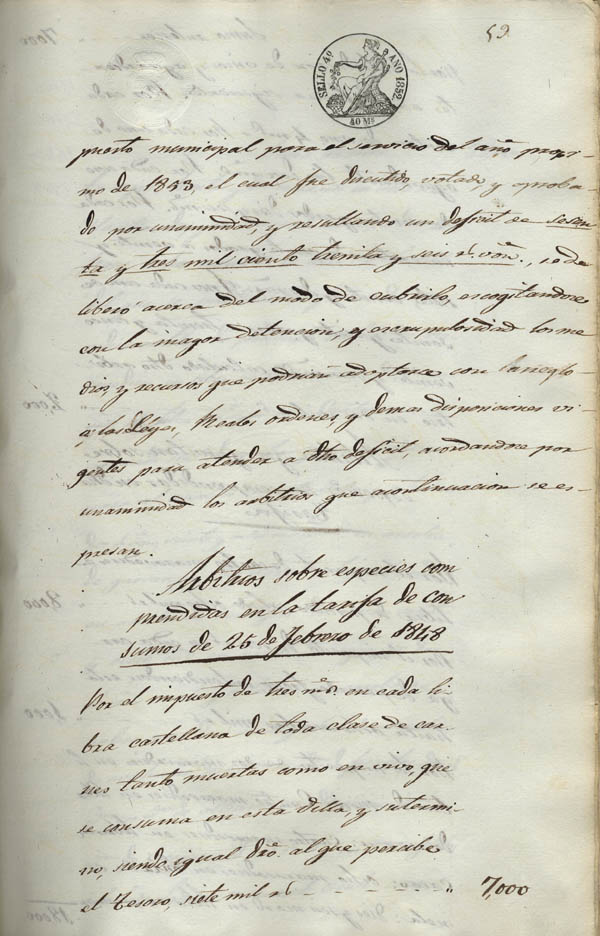 59.
SELLO 4º AÑO 1852.
40 Mˢ
puesto municipal para el servicio del año procsi-
mo de 1853, el cual fue discutido, votado, y aproba-
do por unanimidad, y resultando un deficit de sesen-
ta y tres mil ciento treinta y seis rˢ vón., se de-
liberó acerca del modo de cubrirlo, escogitandose
con la mayor detencion, y escrupulosidad los me-
dios, y recursos que podrian adoptarse con arreglo
á las Leyes, Reales ordenes, y demas disposiciones vi-
gentes para atender á dho deficit, acordandose por
unanimidad los arbitrios que acontinuacion se es-
presan.
Arbitrios sobre especies com
prendidas en la tarifa de con
sumos de 25 de Febrero de 1848
Por el impuesto de tres mˢ en cada li-
bra castellana de toda clase de car-
nes tanto muertas como en vivo, que
se consuma en esta Villa, y su termi-
no, siendo igual dro. al que percibe
el Tesoro, siete mil rˢ - - - - - - - - " 7,000